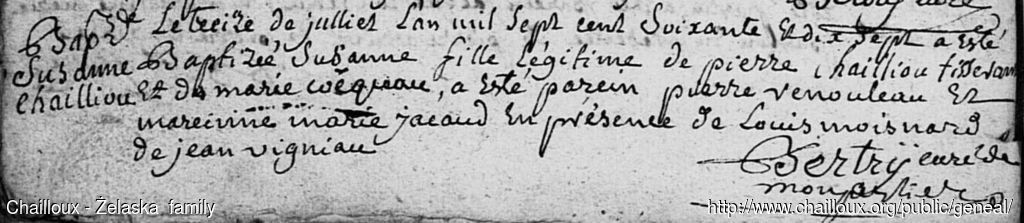 Bapt. Le treize de julliet L'an mil Sept cent Soixante Et dix Sept a Esté
Susanne Baptizéé Susanne fille Légitime de pierre Chailliou tisseran
Chailliou Et de marie coëquau, a Esté parein pierre renouleau Et
mareinne marie jacaud En présence de Louis moisnard
de jean vigniau
Bertry curé de
Chailloux - Želaska family
http://www.chailloux.org/public/geneal/